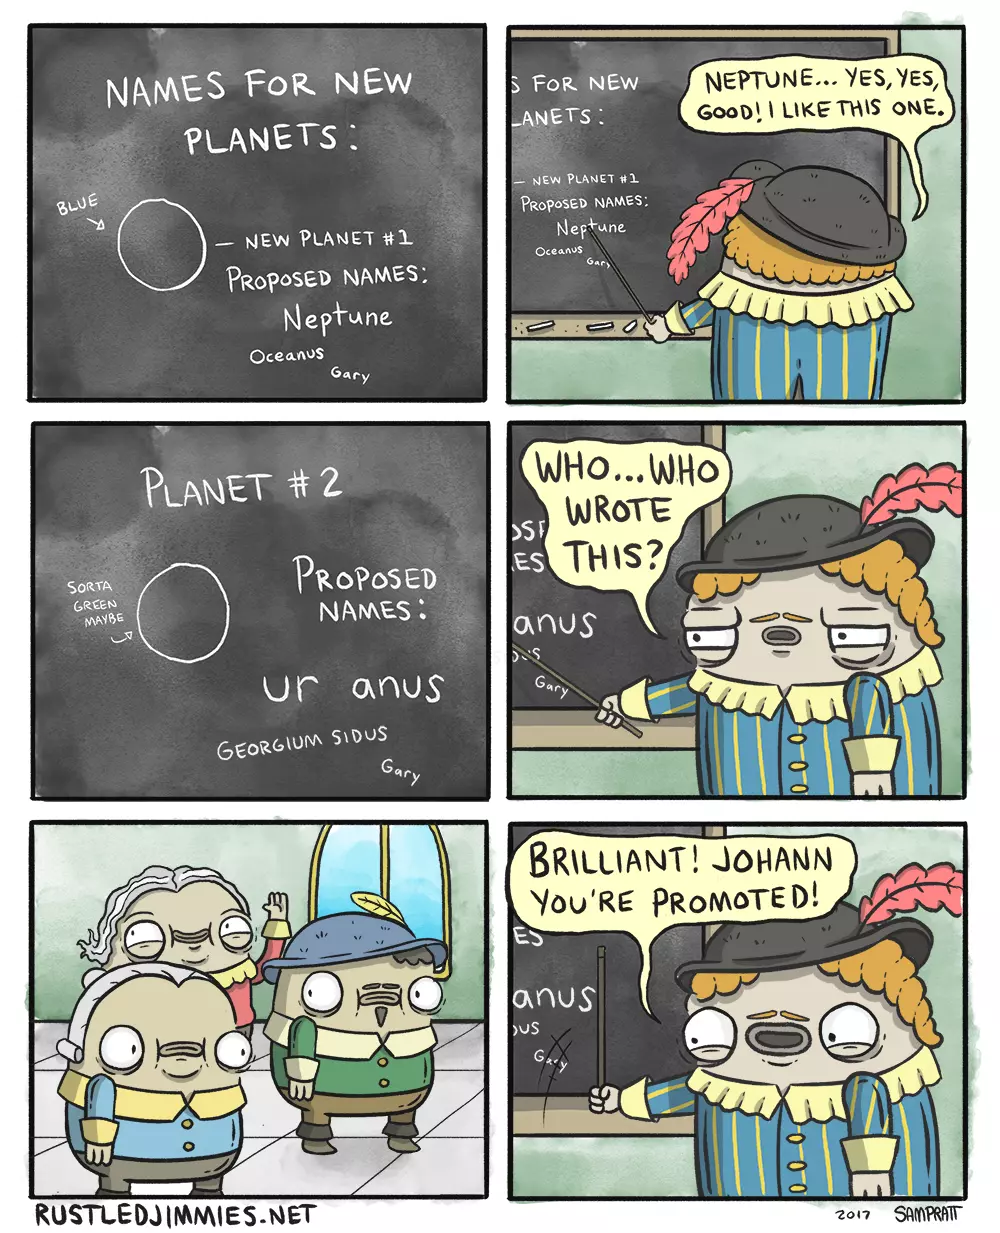 NAMES FOR NEW
PLANETS:
BLUE
— NEW PLANET #1
PROPOSED NAMES:
Neptune
OCEANUS
Gary
S FOR NEW
LANETS:
NEPTUNE... YES, YES,
GOOD! I LIKE THIS ONE.
— NEW PLANET #1
PROPOSED NAMES:
Neptune
OCEANUS
Gary
PLANET #2
SORTA
GREEN
MAYBE
PROPOSED
NAMES:
ur anus
GEORGIUM SIDUS
Gary
WHO... WHO
WROTE
THIS?
OSE
ES
anus
DUS
Gary
BRILLIANT! JOHANN
YOU'RE PROMOTED!
ES
anus
DUS
Gary
RUSTLEDJIMMIES.NET
2017 SAMPRATT